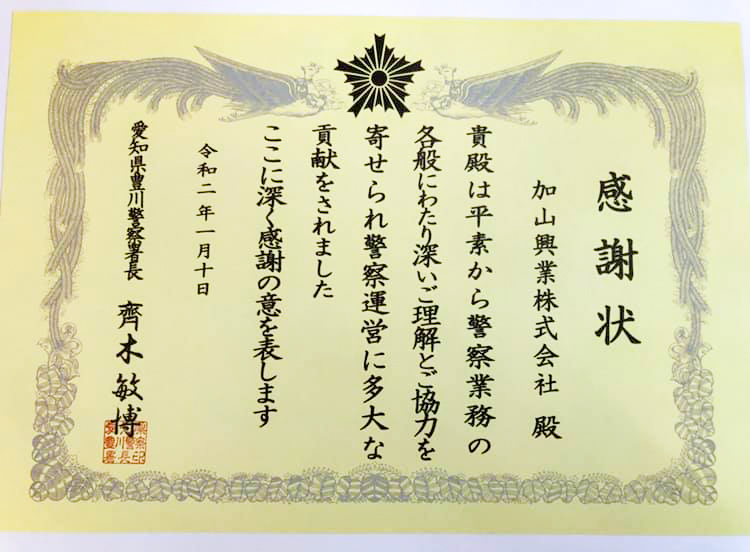 感謝状
加山興業株式会社 殿
貴殿は平素から警察業務の
各般にわたり深いご理解とご協力を
寄せられ警察運営に多大な
貢献をされました
ここに深く感謝の意を表します
令和二年一月十日
愛知県豊川警察署長 齊木敏博